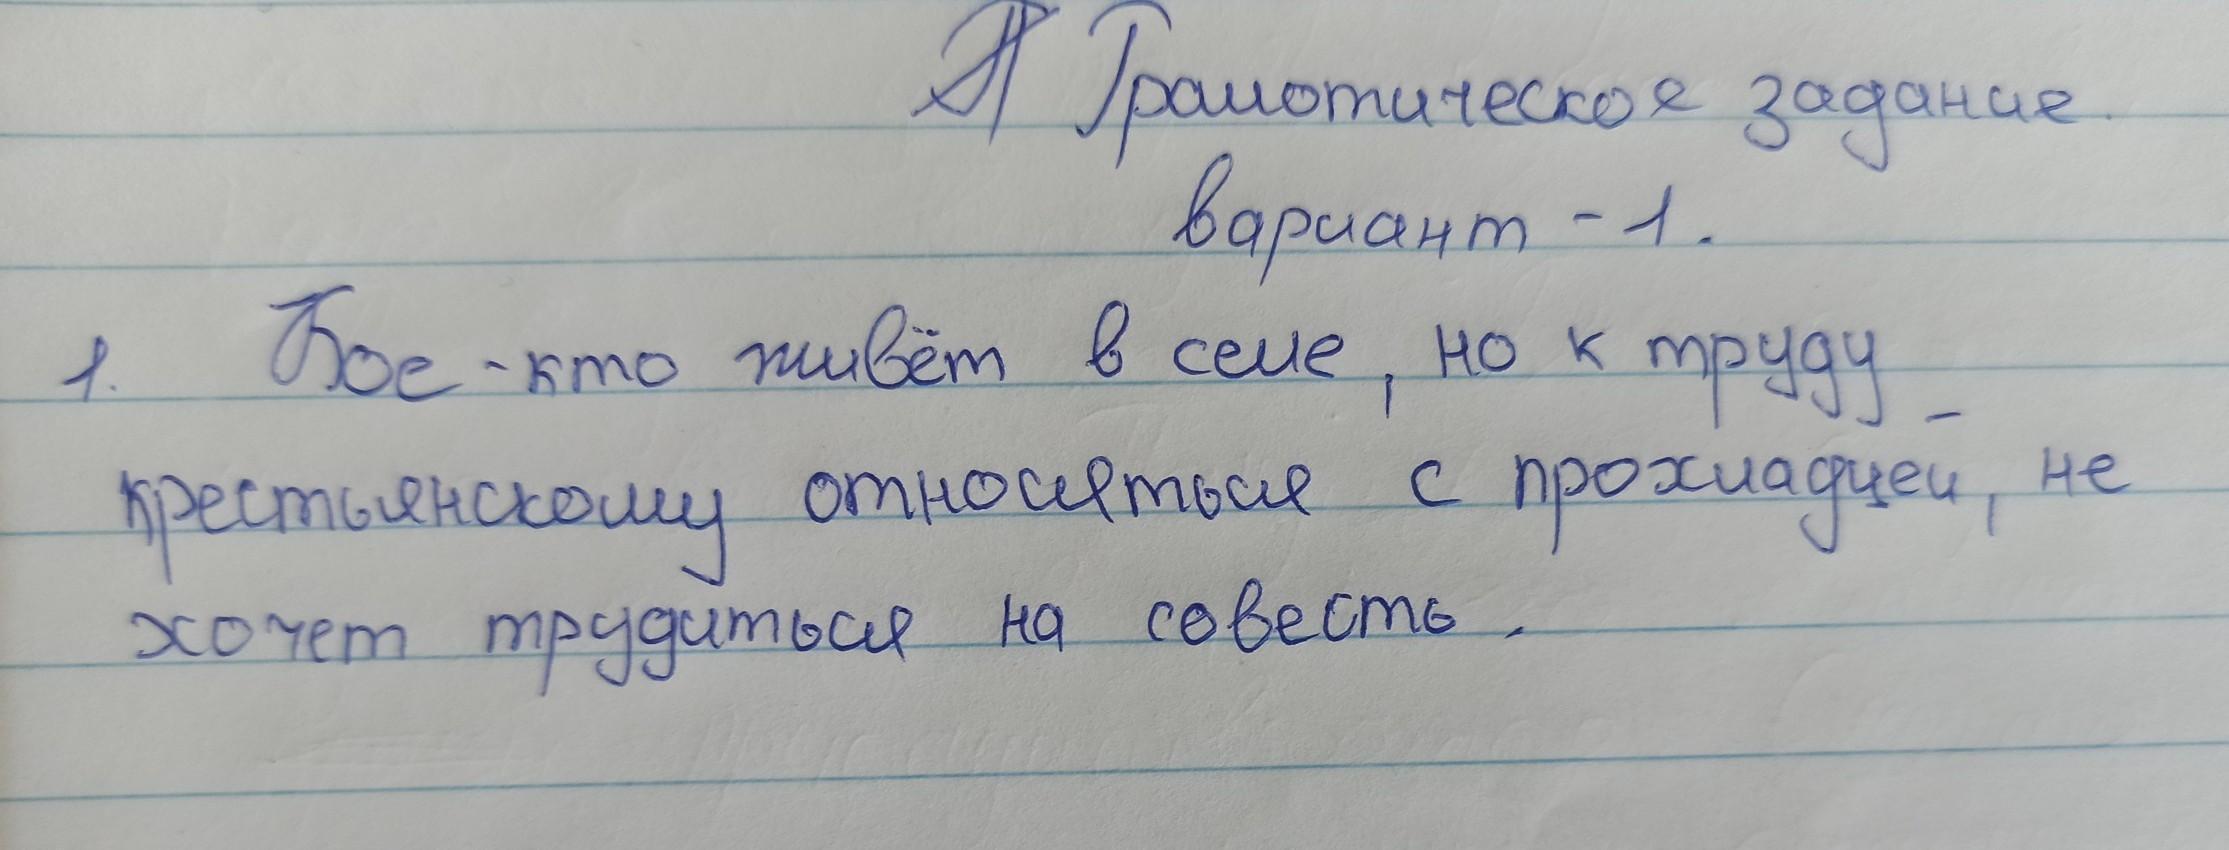 Грамотическое задание.
вариант - 1.
1. Кое-кто живёт в селе, но к труду -
крестьянскому относяться с прохладцей, не
хочет трудиться на совесть.